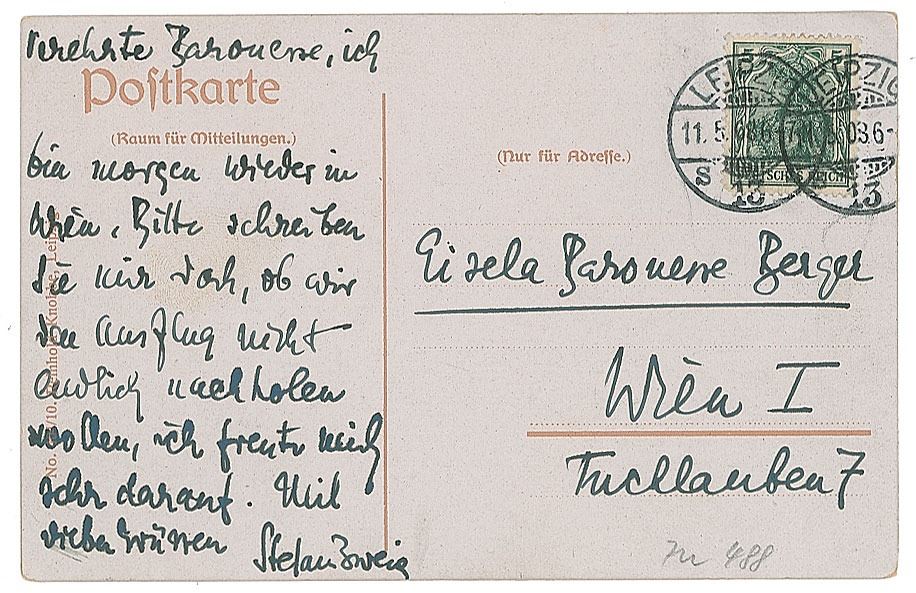 Verehrte Baronesse, ich
Postkarte
(Raum für Mitteilungen.)
bin morgen wieder in
Wien. Bitte schreiben
Sie mir doch, ob wir
den Ausflug nicht
endlich nachholen
wollen, ich freute mich
sehr darauf. Mit
vielen Grüssen
Stefan Zweig
(Nur für Adresse.)
LEIPZIG
11.5.
13
DEUTSCHES REICH
Gisela Baronesse Berger
Wien I
Tuchlauben 7
No. /10. Reinhold Knobbe, Leipzig
488